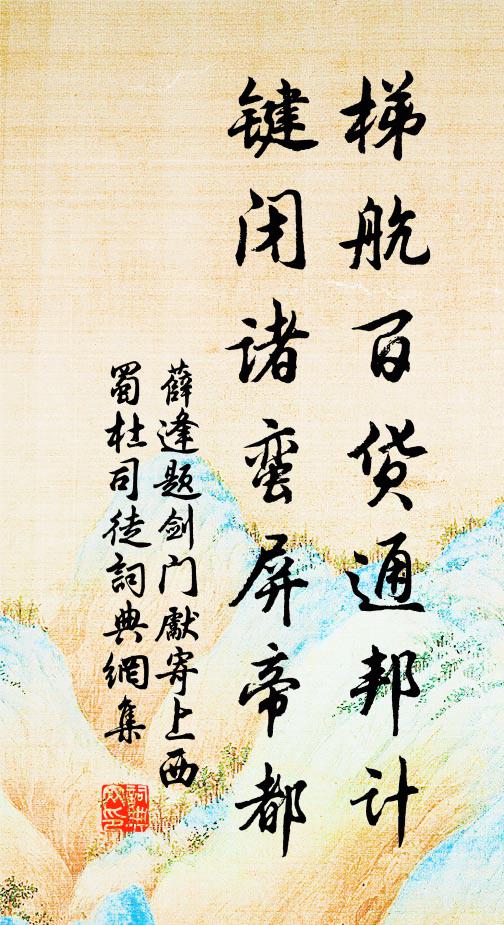 梯航百货通邦计
键闭诸蛮屏帝都
薛逢题剑门獻寄上西
蜀杜司徒詞典網集